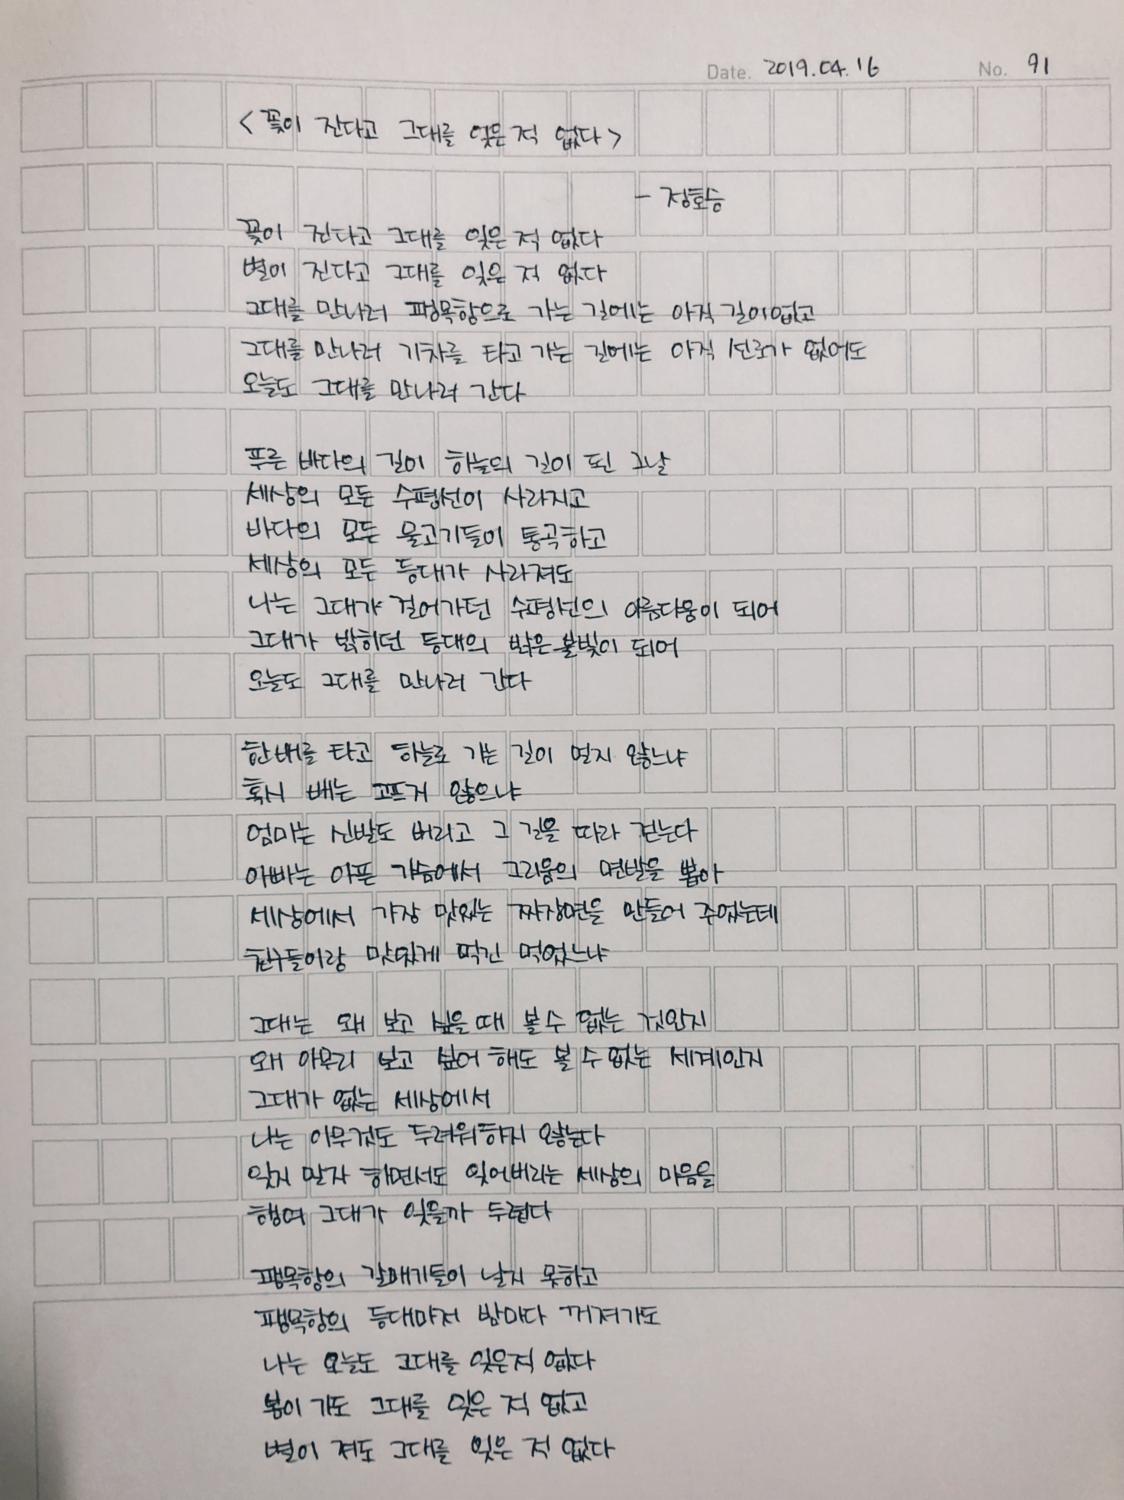 Date. 2019.04.16 No. 91
<꽃이 진다고 그대를 잊은 적 없다>
- 정호승
꽃이 진다고 그대를 잊은 적 없다
별이 진다고 그대를 잊은 적 없다
그대를 만나러 팽목항으로 가는 길에는 아직 길이 없고
그대를 만나러 기차를 타고 가는 길에는 아직 선로가 없어도
오늘도 그대를 만나러 간다
푸른 바다의 길이 하늘의 길이 된 그날
세상의 모든 수평선이 사라지고
바다의 모든 물고기들이 통곡하고
세상의 모든 등대가 사라져도
나는 그대가 걸어가던 수평선의 아름다움이 되어
그대가 밝히던 등대의 밝은 불빛이 되어
오늘도 그대를 만나러 간다
한 배를 타고 하늘로 가는 길이 멀지 않느냐
혹시 배는 고프지 않으냐
엄마는 신발도 버리고 그 길을 따라 걷는다
아빠는 아픈 가슴에서 그리움의 면발을 뽑아
세상에서 가장 맛있는 짜장면을 만들어 주었는데
친구들이랑 맛있게 먹긴 먹었느냐
그대는 왜 보고 싶을 때 볼 수 없는 것인지
왜 아무리 보고 싶어 해도 볼 수 없는 세계인지
그대가 없는 세상에서
나는 아무것도 두려워하지 않는다
잊지 말자 하면서도 잊어버리는 세상의 마음을
행여 그대가 잊을까 두렵다
팽목항의 갈매기들이 날지 못하고
팽목항의 등대마저 밤마다 꺼져가도
나는 오늘도 그대를 잊은 적 없다
봄이 가도 그대를 잊은 적 없고
별이 져도 그대를 잊은 적 없다